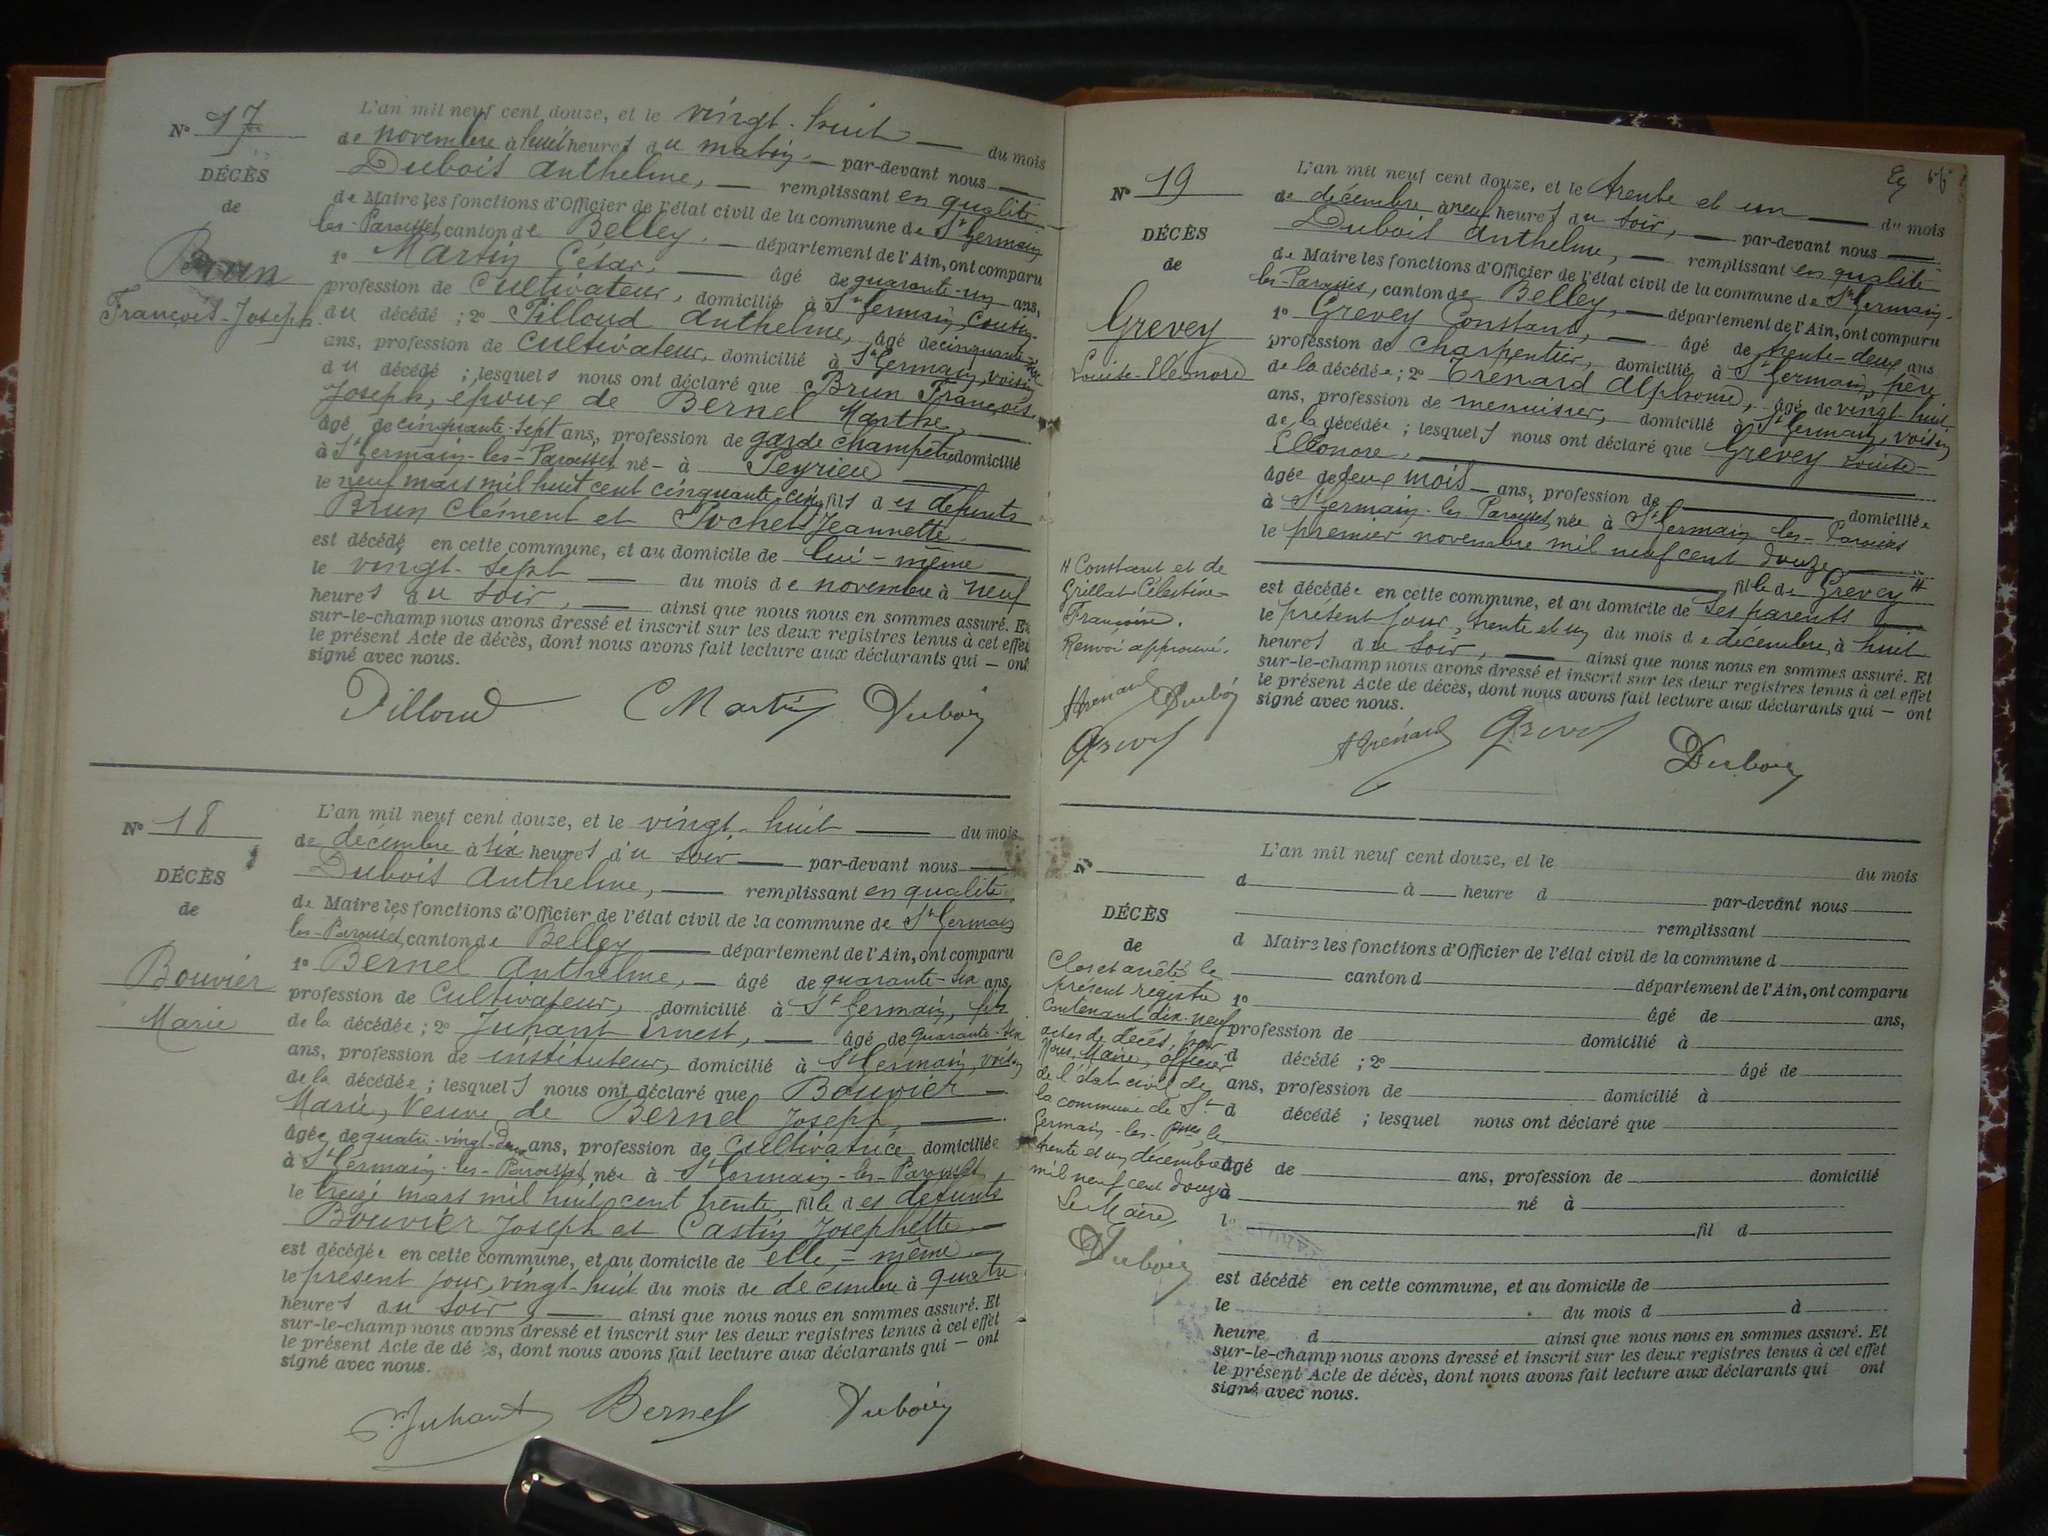 N° 17
DÉCÈS
de
Brun
François-Joseph
L'an mil neuf cent douze, et le vingt-huit du mois
de novembre à huit heures du matin, par-devant nous
Dubois Anthelme, remplissant en qualité
de Maire les fonctions d'Officier de l'état civil de la commune de St Germain
les-Paroisses, canton de Belley, département de l'Ain, ont comparu
1° Martin César, âgé de quarante-un ans,
profession de Cultivateur, domicilié à St Germain, Cousin
du décédé ; 2° Pilloud Anthelme, âgé de cinquante
ans, profession de Cultivateur, domicilié à St Germain, voisin
du décédé ; lesquels nous ont déclaré que Brun François
Joseph, époux de Bernel Marthe,
âgé de cinquante-sept ans, profession de garde champêtre domicilié
à St Germain-les-Paroisses né à Peyrieu
le neuf mars mil huit cent cinquante-cinq fils des defunts
Brun Clément et Pochet Jeannette
est décédé en cette commune, et au domicile de lui-même
le vingt-sept du mois de novembre à neuf
heures du soir, ainsi que nous nous en sommes assuré. Et
sur-le-champ nous avons dressé et inscrit sur les deux registres tenus à cet effet
le présent Acte de décès, dont nous avons fait lecture aux déclarants qui — ont
signé avec nous.
Pilloud C Martin Dubois
N° 18
DÉCÈS
de
Bouvier
Marie
L'an mil neuf cent douze, et le vingt-huit du mois
de décembre à six heures du soir par-devant nous
Dubois Anthelme, remplissant en qualité
de Maire les fonctions d'Officier de l'état civil de la commune de St Germain
les-Paroisses, canton de Belley département de l'Ain, ont comparu
1° Bernel Anthelme, âgé de quarante-six ans,
profession de Cultivateur, domicilié à St Germain, fils
de la décédée ; 2° Juhant Ernest, âgé de quarante-six
ans, profession de instituteur, domicilié à St Germain, voisin
de la décédée ; lesquels nous ont déclaré que Bouvier
Marie, Veuve de Bernel Joseph,
âgée de quatre-vingt-deux ans, profession de Cultivatrice domiciliée
à St Germain-les-Paroisses, née à St Germain-les-Paroisses
le treize mars mil huit cent trente, fille des defunts
Bouvier Joseph et Castin Josephette
est décédée en cette commune, et au domicile de elle-même
le présent jour, vingt-huit du mois de décembre à quatre
heures du soir, ainsi que nous nous en sommes assuré. Et
sur-le-champ nous avons dressé et inscrit sur les deux registres tenus à cet effet
le présent Acte de dé s, dont nous avons fait lecture aux déclarants qui — ont
signé avec nous.
Juhant Bernel Dubois
N° 19
DÉCÈS
de
Grevey
Louise-Eléonore
L'an mil neuf cent douze, et le trente et un du mois
de décembre à neuf heures du soir, par-devant nous
Dubois Anthelme, remplissant en qualité
de Maire les fonctions d'Officier de l'état civil de la commune de St Germain
les-Paroisses, canton de Belley, département de l'Ain, ont comparu
1° Grevey Constant, âgé de trente-deux ans
profession de charpentier, domicilié à St Germain, père
de la décédée ; 2° Trénard Alphonse, âgé de vingt-huit
ans, profession de menuisier, domicilié à St Germain, voisin
de la décédée ; lesquels nous ont déclaré que Grevey Louise-
Eléonore,
âgée de deux mois ans, profession de domiciliée
à St Germain-les-Paroisses, née à St Germain-les-Paroisses
le premier novembre mil neuf cent douze,
fille de Grevey #
est décédée en cette commune, et au domicile de ses parents
le présent jour, trente et un du mois de décembre, à huit
heures du soir, ainsi que nous nous en sommes assuré. Et
sur-le-champ nous avons dressé et inscrit sur les deux registres tenus à cet effet
le présent Acte de décès, dont nous avons fait lecture aux déclarants qui — ont
signé avec nous.
# Constant et de
Grillat Célestine-
Françoise.
Renvoi approuvé.
ATrénard Dubois
Grevey
ATrénard Grevey Dubois
N°
DÉCÈS
de
L'an mil neuf cent douze, et le du mois
d à heure d par-devant nous
remplissant
d Maire les fonctions d'Officier de l'état civil de la commune d
canton d département de l'Ain, ont comparu
1° âgé de ans,
profession de domicilié à
d décédé ; 2° âgé de
ans, profession de domicilié à
d décédé ; lesquel nous ont déclaré que
âgé de ans, profession de domicilié
à né à
le fil d
est décédé en cette commune, et au domicile de
le du mois d à
heure d ainsi que nous nous en sommes assuré. Et
sur-le-champ nous avons dressé et inscrit sur les deux registres tenus à cet effet
le présent Acte de décès, dont nous avons fait lecture aux déclarants qui ont
signé avec nous.
Clos et arrêté le
présent registre
contenant dix-neuf
actes de décès, par
Nous, Maire, officier
de l'état civil de
la commune de St
Germain-les-Psses, le
trente et un décembre
mil neuf cent douze
Le Maire,
Dubois